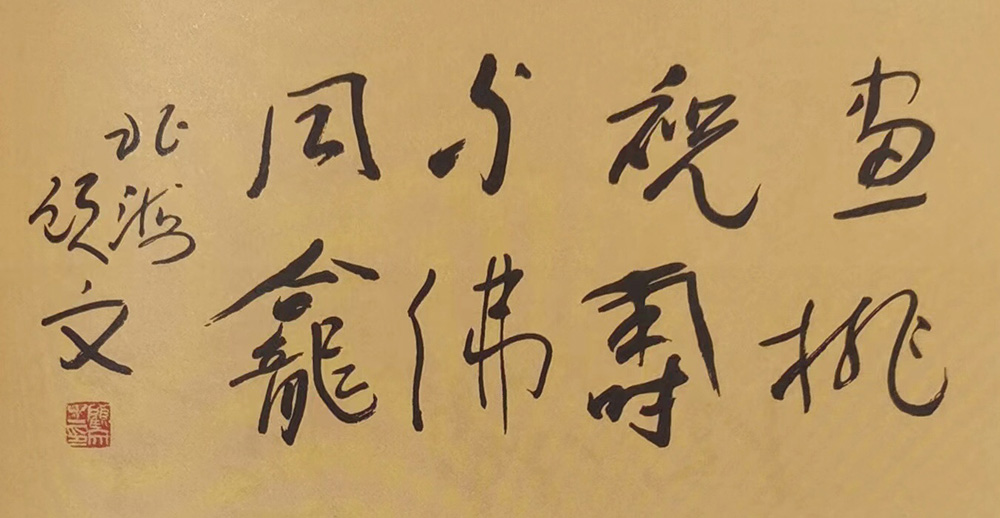 畫桃
祝壽
与佛
同龕
北海
顧文